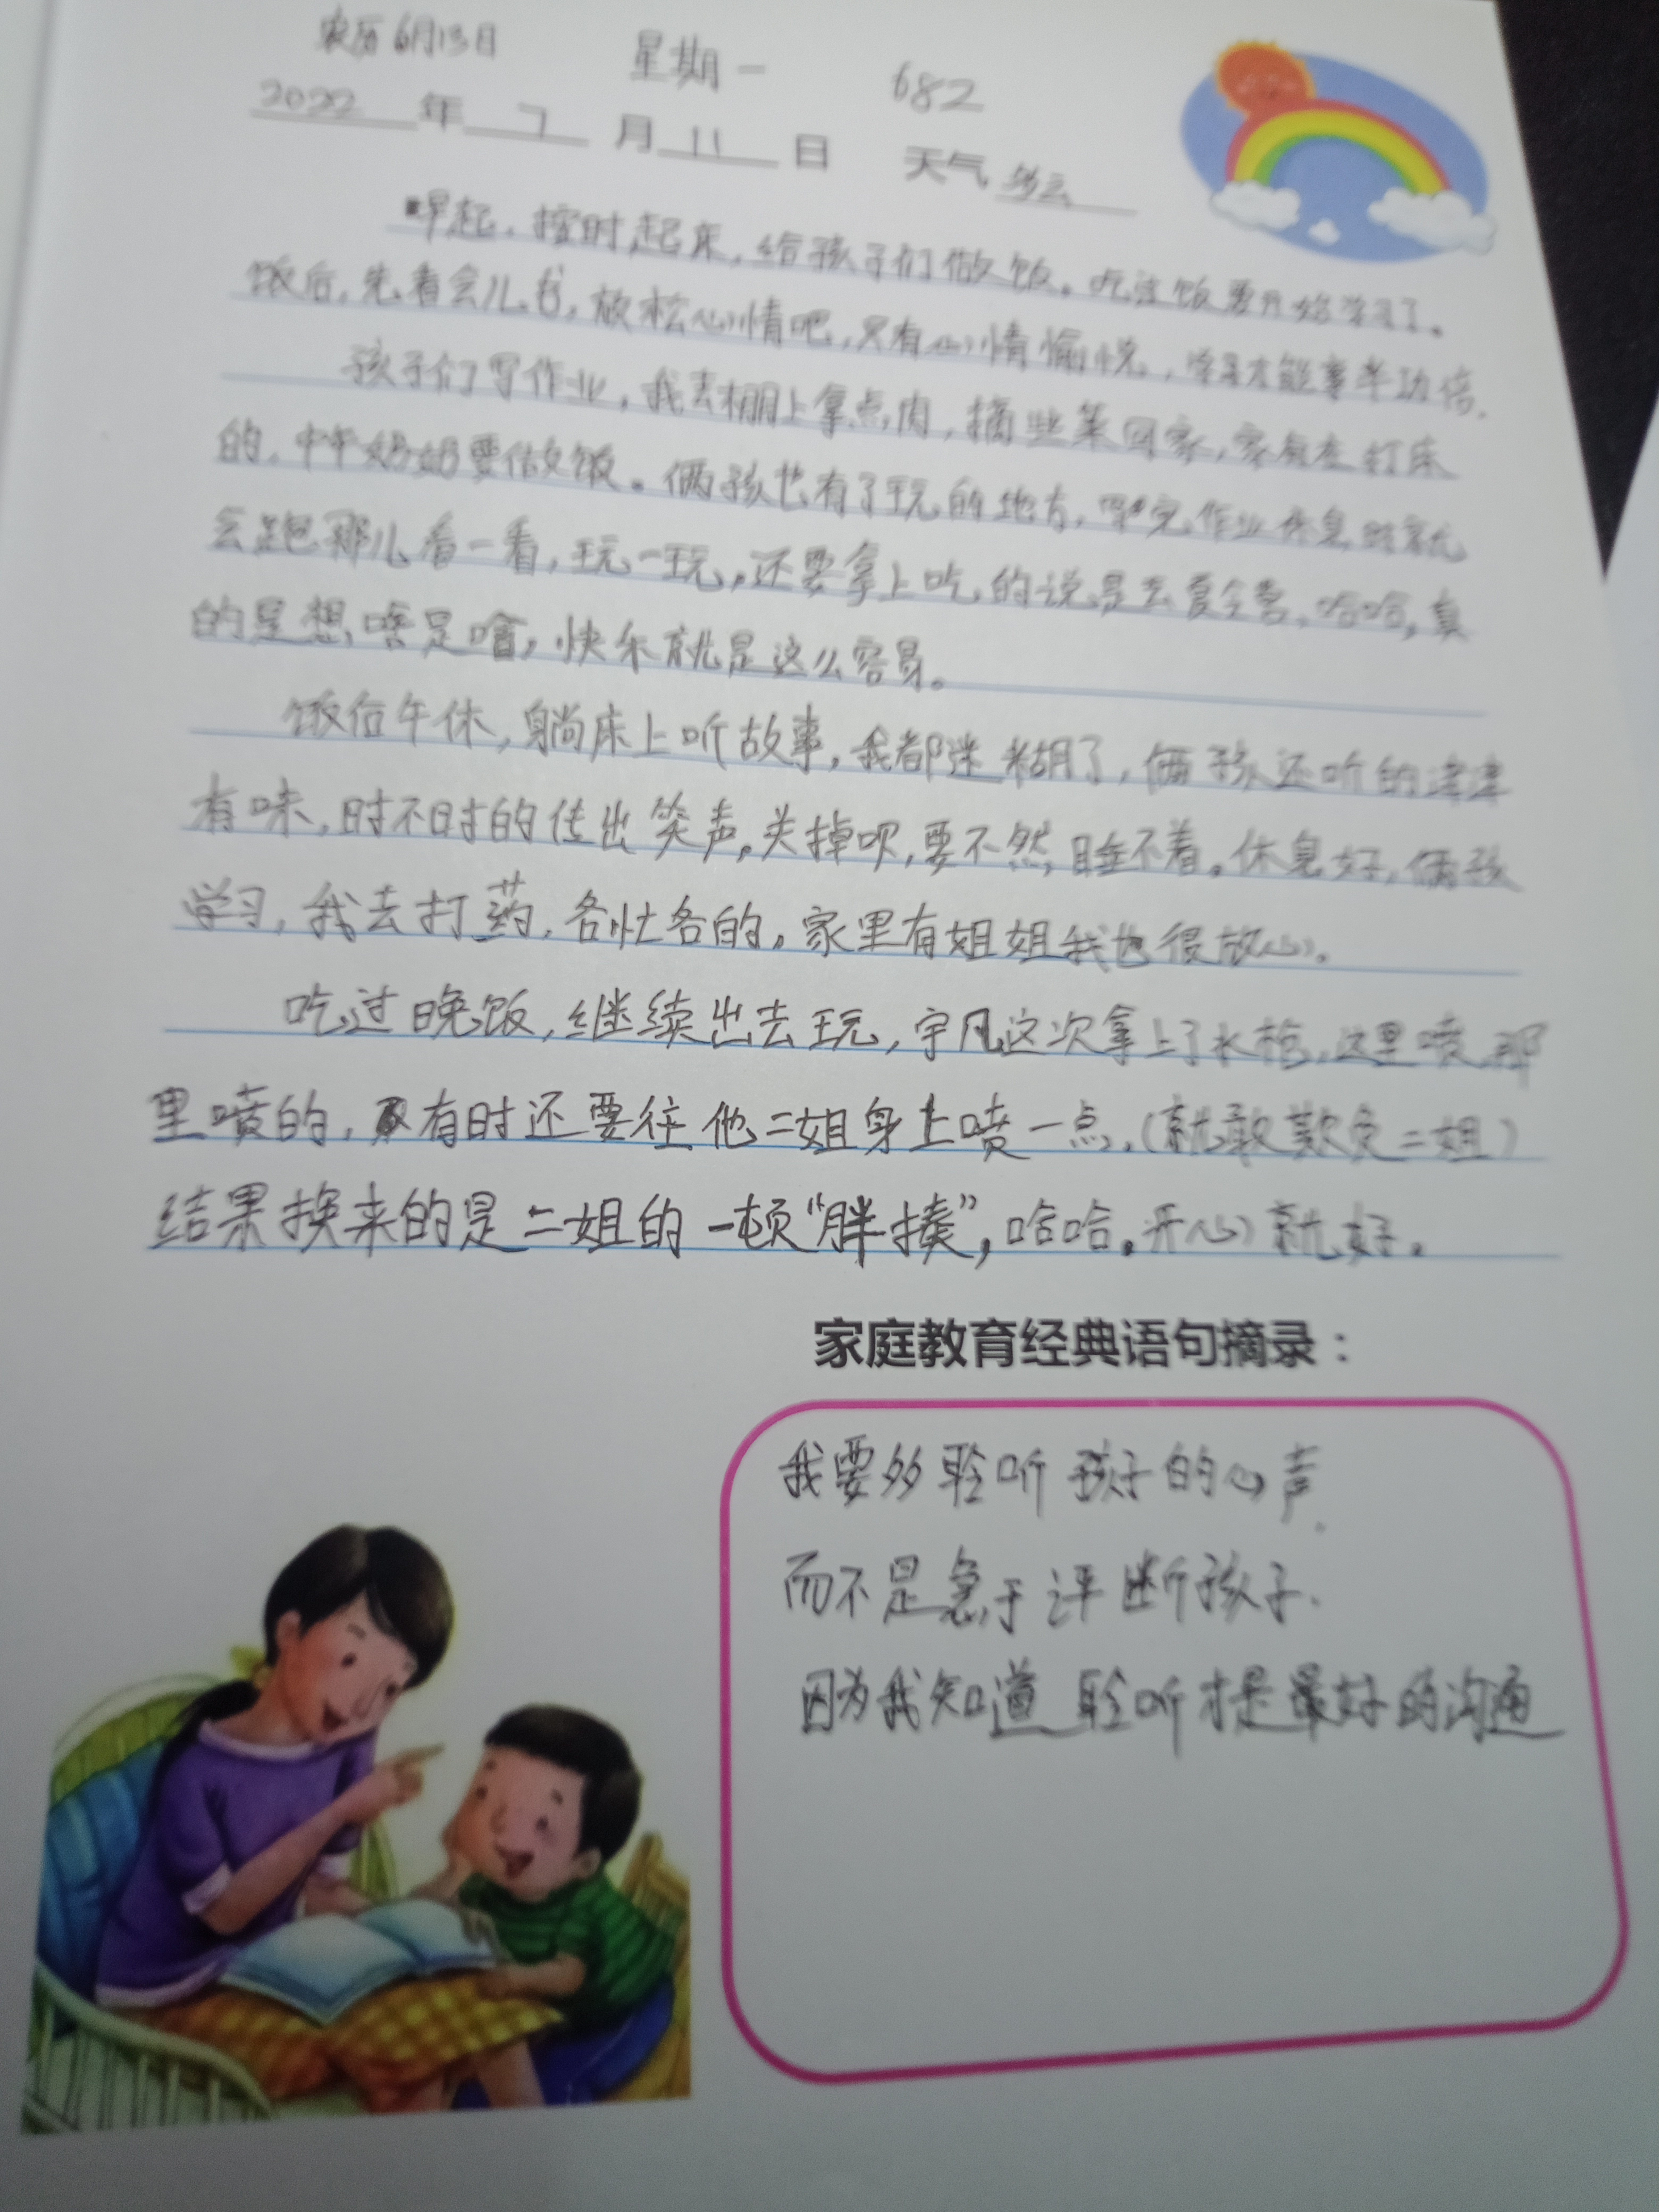 农历6月13日 星期一 682
2022年7月11日 天气多云
早起,按时起床,给孩子们做饭。吃过饭要开始学习了。
饭后,先看会儿书,放松心情吧,只有心情愉悦,学习才能事半功倍.
孩子们写作业,我去棚上拿点肉,摘些菜回家,家有在打床
的,中午奶奶要做饭。俩孩也有了玩的地方,写完作业休息时就
会跑那儿看一看,玩一玩,还要拿上吃的说是去夏令营,哈哈,真
的是想啥是啥,快乐就是这么容易。
饭后午休,躺床上听故事,我都迷糊了,俩孩还听的津津
有味,时不时的传出笑声,关掉呗,要不然睡不着。休息好,俩孩
学习,我去打药,各忙各的,家里有姐姐我也很放心。
吃过晚饭,继续出去玩,宇凡这次拿上了水枪,这里喷,那
里喷的,有时还要往他二姐身上喷一点,(就敢欺负二姐)
结果换来的是二姐的一顿“胖揍”,哈哈。开心就好。
家庭教育经典语句摘录:
我要多聆听孩子的心声.
而不是急于评断孩子.
因为我知道聆听才是最好的沟通